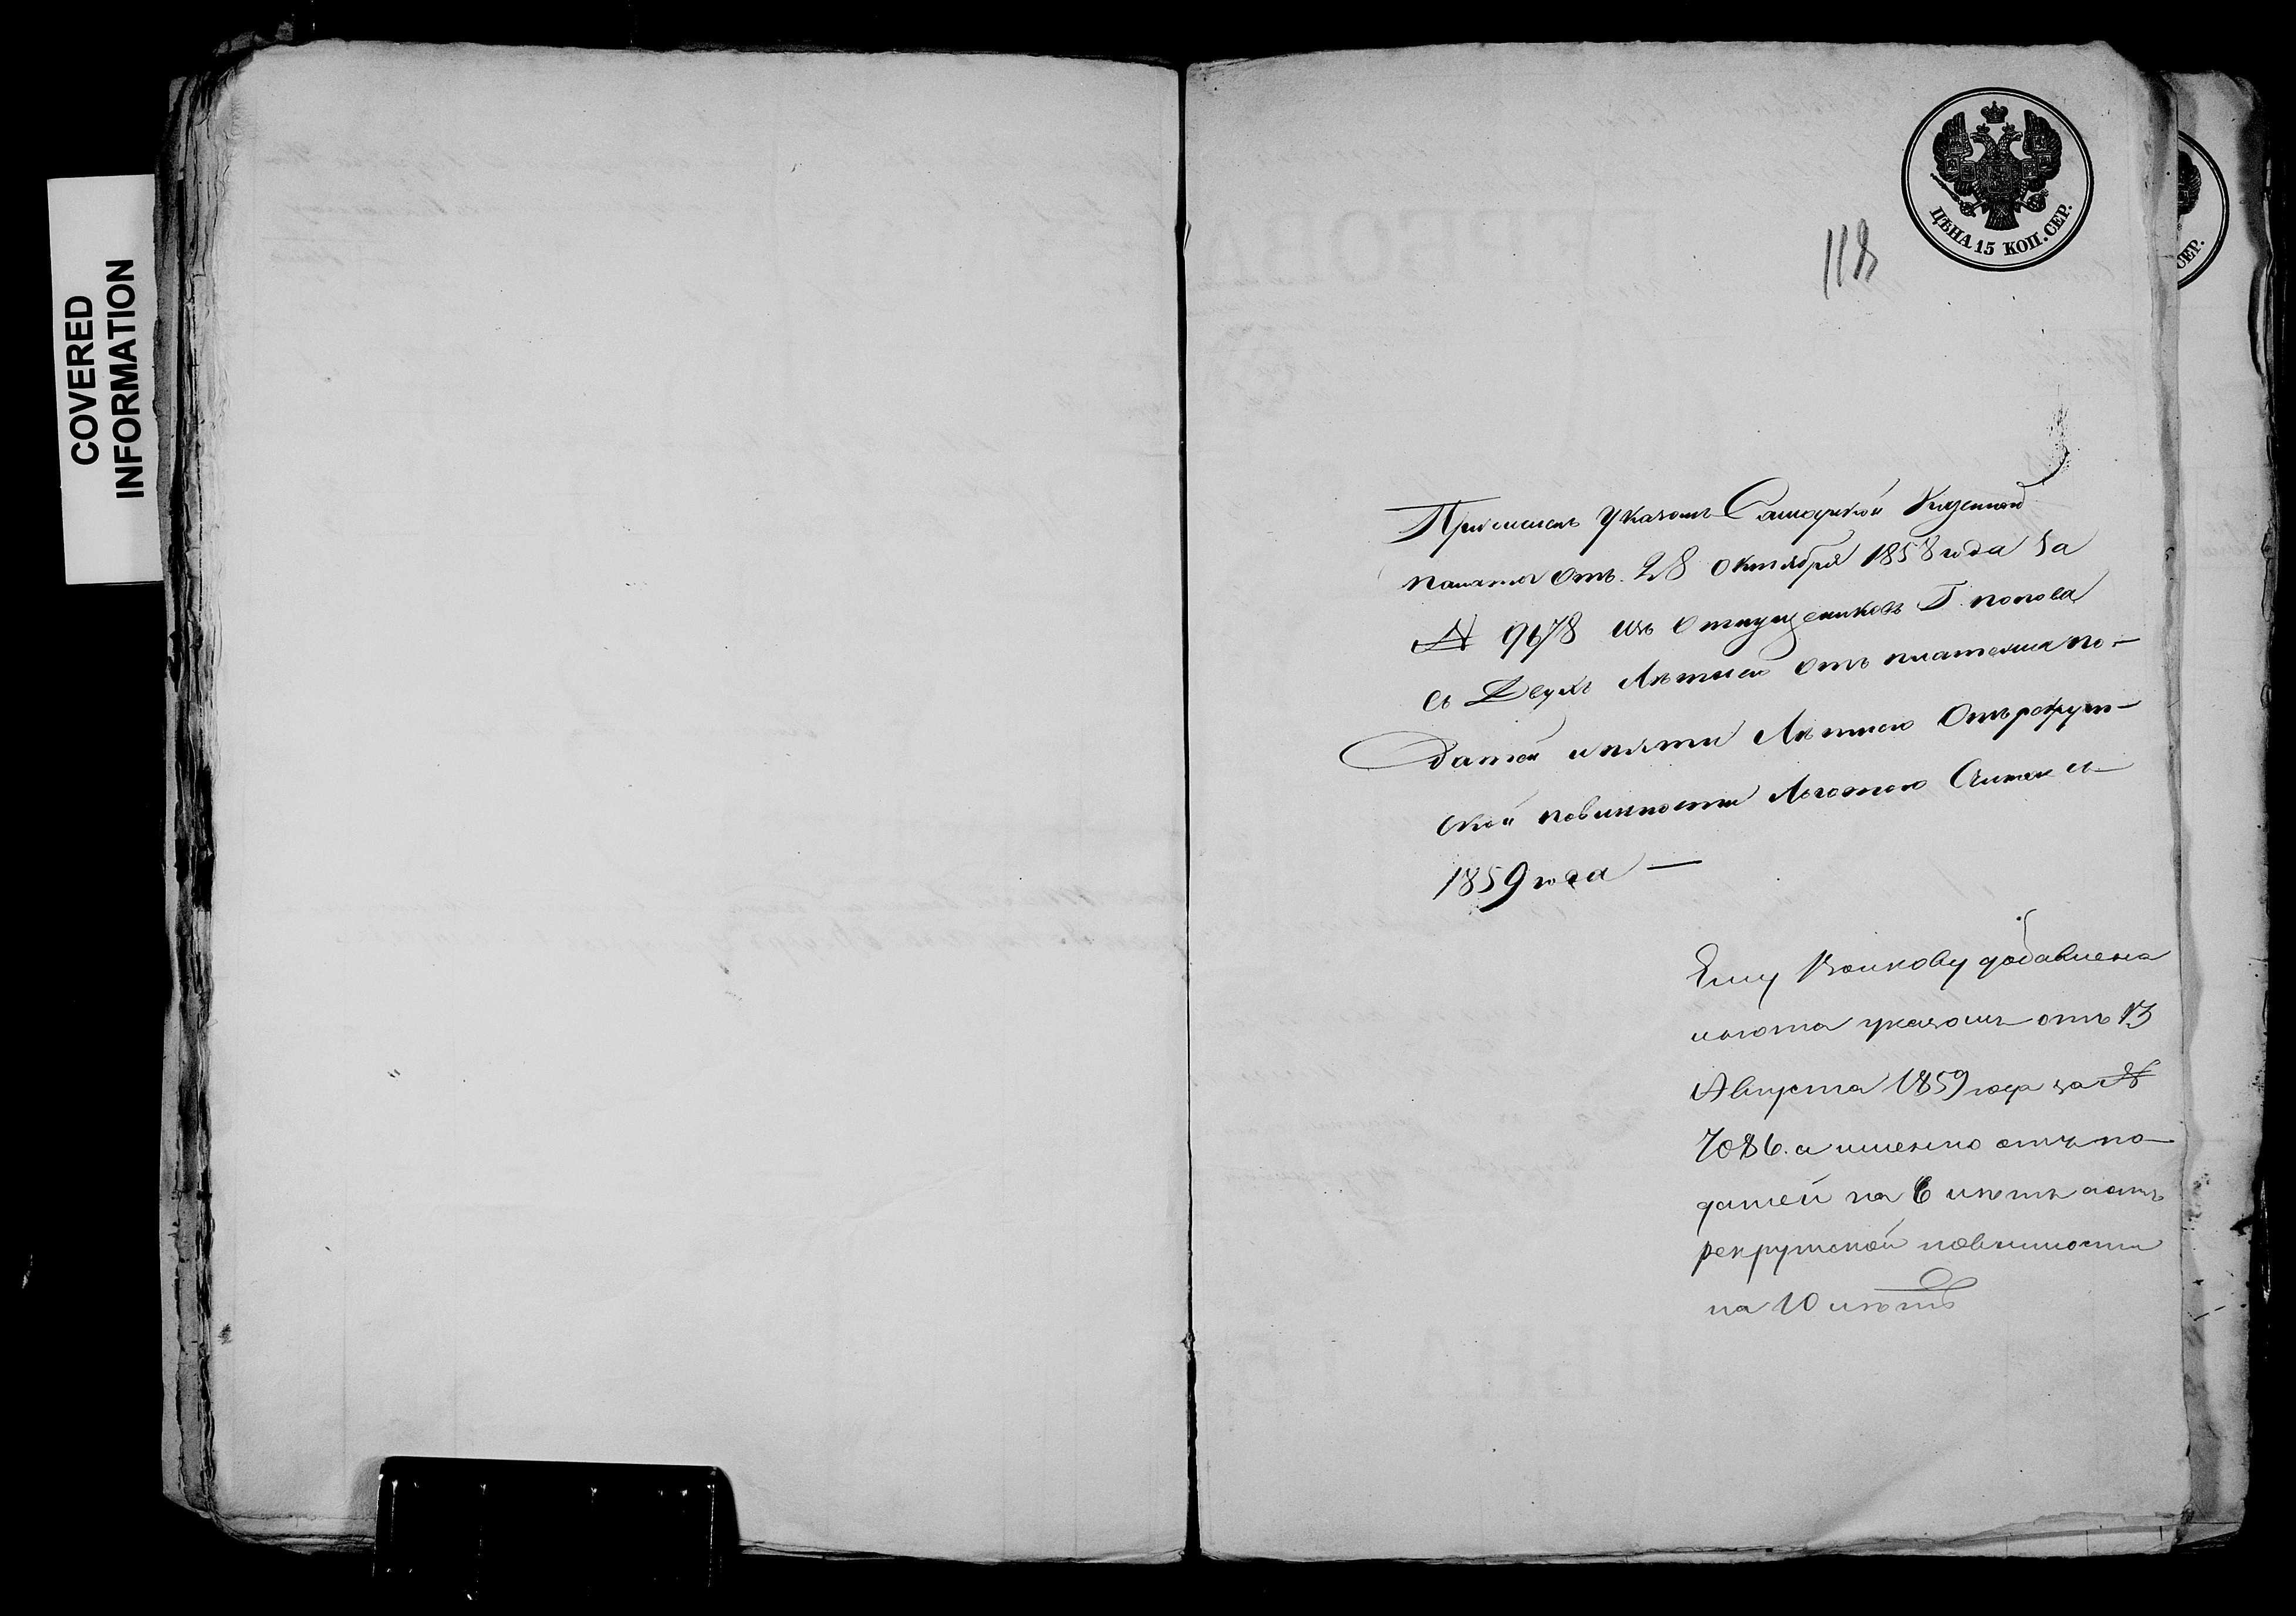 COVERED
INFORMATION
ЦѢНА 15 КОП. СЕР.
СЕР.
118
Причисленъ Указомъ Самарской Казенной
палаты отъ 28 октября 1858 года За
№ 9678 изъ отпущениковъ Г. попова
съ Двухъ Лѣтнею отъ платежа по-
датей и пяти Лѣтнею Отъ рекрут-
ской повинности Льготою Считая съ
1859 года —
Ему Волкову добавлена
льгота указомъ отъ 13
Августа 1859 года за №
7086. а именно отъ по-
датей на 6 лѣтъ и отъ
рекрутской повинности
на 10 лѣтъ